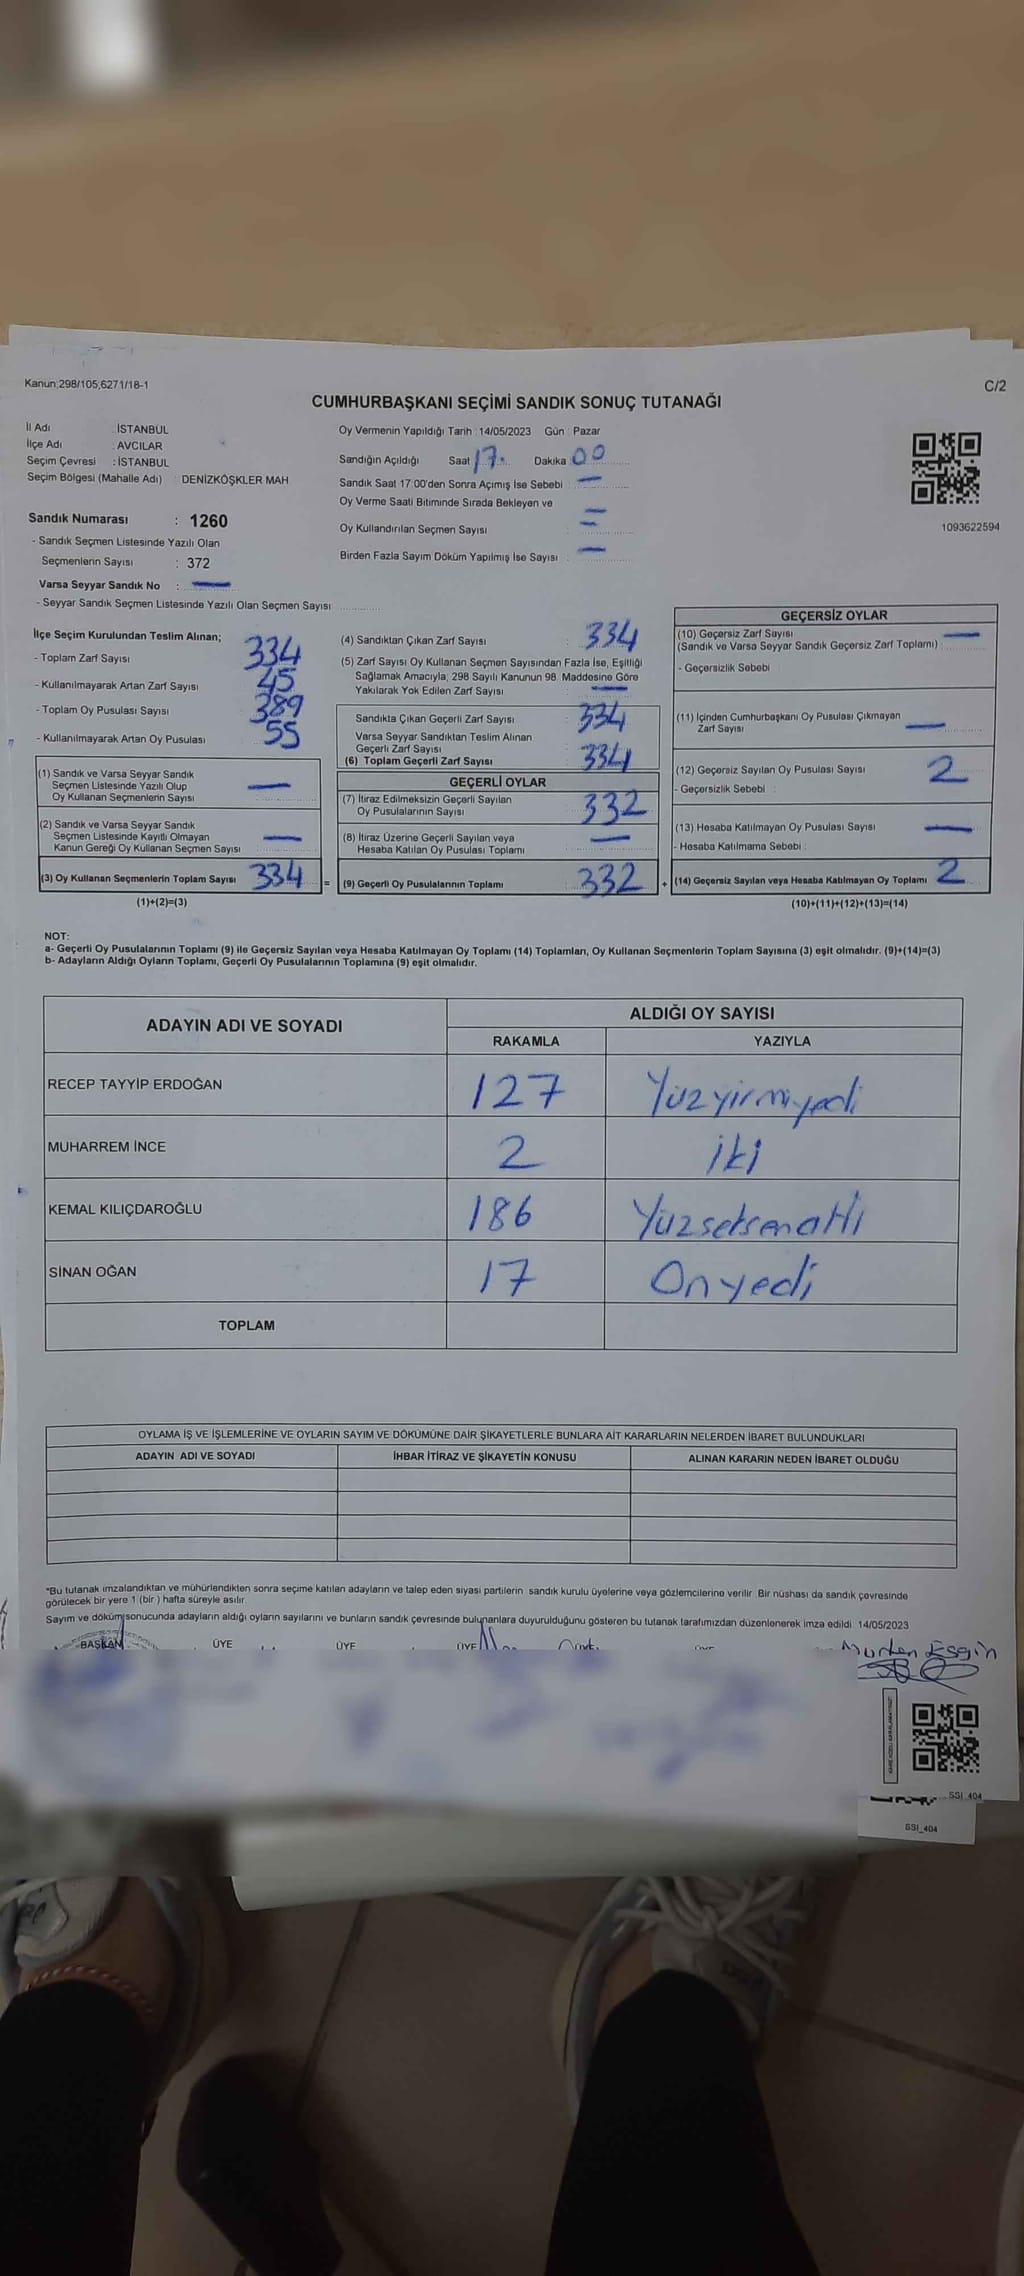 Kanun;298/105,6271/18-1
C/2
CUMHURBAŞKANI SEÇİMİ SANDIK SONUÇ TUTANAĞI
İl Adı : İSTANBUL
İlçe Adı : AVCILAR
Seçim Çevresi : İSTANBUL
Seçim Bölgesi (Mahalle Adı) : DENİZKÖŞKLER MAH
Sandık Numarası : 1260
- Sandık Seçmen Listesinde Yazılı Olan
Seçmenlerin Sayısı : 372
Varsa Seyyar Sandık No : —
- Seyyar Sandık Seçmen Listesinde Yazılı Olan Seçmen Sayısı
Oy Vermenin Yapıldığı Tarih : 14/05/2023 Gün : Pazar
Sandığın Açıldığı Saat 17 Dakika 00
Sandık Saat 17 00'den Sonra Açımış İse Sebebi : —
Oy Verme Saati Bitiminde Sırada Bekleyen ve
Oy Kullandırılan Seçmen Sayısı : —
Birden Fazla Sayım Döküm Yapılmış İse Sayısı : —
1093622594
İlçe Seçim Kurulundan Teslim Alınan;
- Toplam Zarf Sayısı 334
- Kullanılmayarak Artan Zarf Sayısı 45
- Toplam Oy Pusulası Sayısı 389
- Kullanılmayarak Artan Oy Pusulası 55
(1) Sandık ve Varsa Seyyar Sandık
Seçmen Listesinde Yazılı Olup
Oy Kullanan Seçmenlerin Sayısı —
(2) Sandık ve Varsa Seyyar Sandık
Seçmen Listesinde Kayıtlı Olmayan
Kanun Gereği Oy Kullanan Seçmen Sayısı —
(3) Oy Kullanan Seçmenlerin Toplam Sayısı 334 =
(1)+(2)=(3)
(4) Sandıktan Çıkan Zarf Sayısı : 334
(5) Zarf Sayısı Oy Kullanan Seçmen Sayısından Fazla İse, Eşitliği
Sağlamak Amacıyla, 298 Sayılı Kanunun 98. Maddesine Göre
Yakılarak Yok Edilen Zarf Sayısı —
Sandıkta Çıkan Geçerli Zarf Sayısı : 334
Varsa Seyyar Sandıktan Teslim Alınan
Geçerli Zarf Sayısı
(6) Toplam Geçerli Zarf Sayısı : 334
GEÇERLİ OYLAR
(7) İtiraz Edilmeksizin Geçerli Sayılan
Oy Pusulalarının Sayısı : 332
(8) İtiraz Üzerine Geçerli Sayılan veya
Hesaba Katılan Oy Pusulası Toplamı —
(9) Geçerli Oy Pusulalarının Toplamı : 332 +
GEÇERSİZ OYLAR
(10) Geçersiz Zarf Sayısı —
(Sandık ve Varsa Seyyar Sandık Geçersiz Zarf Toplamı) :
- Geçersizlik Sebebi :
(11) İçinden Cumhurbaşkanı Oy Pusulası Çıkmayan
Zarf Sayısı —
(12) Geçersiz Sayılan Oy Pusulası Sayısı : 2
- Geçersizlik Sebebi :
(13) Hesaba Katılmayan Oy Pusulası Sayısı : —
- Hesaba Katılmama Sebebi :
(14) Geçersiz Sayılan veya Hesaba Katılmayan Oy Toplamı : 2
(10)+(11)+(12)+(13)=(14)
NOT:
a- Geçerli Oy Pusulalarının Toplamı (9) ile Geçersiz Sayılan veya Hesaba Katılmayan Oy Toplamı (14) Toplamları, Oy Kullanan Seçmenlerin Toplam Sayısına (3) eşit olmalıdır. (9)+(14)=(3)
b- Adayların Aldığı Oyların Toplamı, Geçerli Oy Pusulalarının Toplamına (9) eşit olmalıdır.
ADAYIN ADI VE SOYADI
ALDIĞI OY SAYISI
RAKAMLA YAZIYLA
RECEP TAYYİP ERDOĞAN 127 Yüzyirmiyedi
MUHARREM İNCE 2 iki
KEMAL KILIÇDAROĞLU 186 Yüzseksenaltı
SİNAN OĞAN 17 Onyedi
TOPLAM
OYLAMA İŞ VE İŞLEMLERİNE VE OYLARIN SAYIM VE DÖKÜMÜNE DAİR ŞİKAYETLERLE BUNLARA AİT KARARLARIN NELERDEN İBARET BULUNDUKLARI
ADAYIN ADI VE SOYADI İHBAR İTİRAZ VE ŞİKAYETİN KONUSU ALINAN KARARIN NEDEN İBARET OLDUĞU
*Bu tutanak imzalandıktan ve mühürlendikten sonra seçime katılan adayların ve talep eden siyasi partilerin sandık kurulu üyelerine veya gözlemcilerine verilir. Bir nüshası da sandık çevresinde
görülecek bir yere 1 (bir) hafta süreyle asılır.
Sayım ve döküm sonucunda adayların aldığı oyların sayılarını ve bunların sandık çevresinde bulunanlara duyurulduğunu gösteren bu tutanak tarafımızdan düzenlenerek imza edildi. 14/05/2023
BAŞKAN ÜYE ÜYE ÜYE
SSI_404
SSI_404